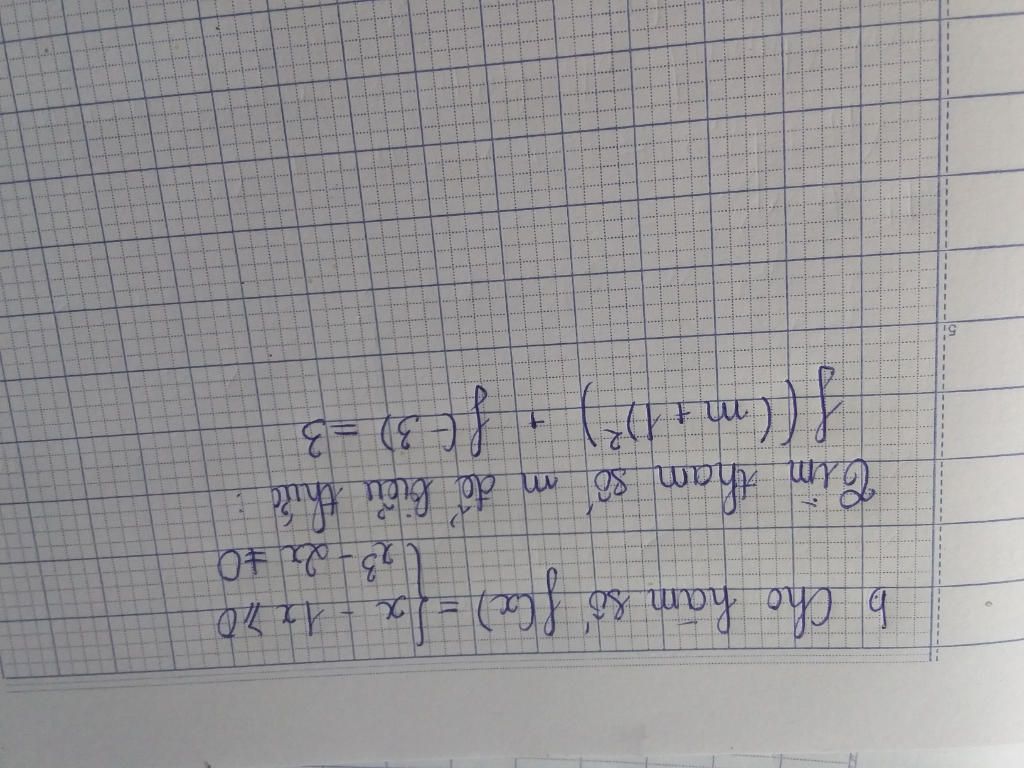 b Cho hàm số f(x) = { x - 1 x ≥ 0
x³ - 2x ≠ 0
Tìm tham số m để biểu thức :
f((m + 1)²) + f(-3) = 3
5